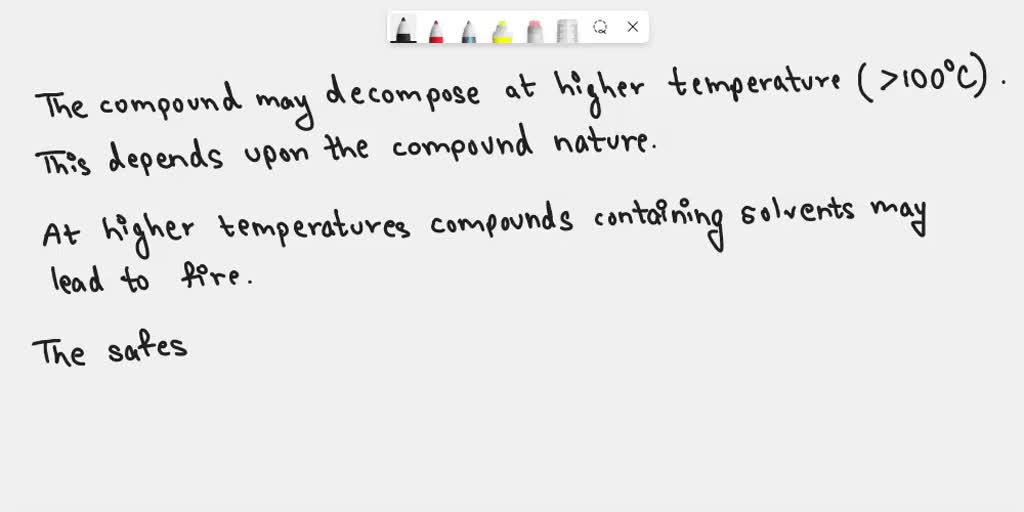 The compound may decompose at higher temperature (>100°C).
This depends upon the compound nature.
At higher temperatures compounds containing solvents may
lead to fire.
The safes